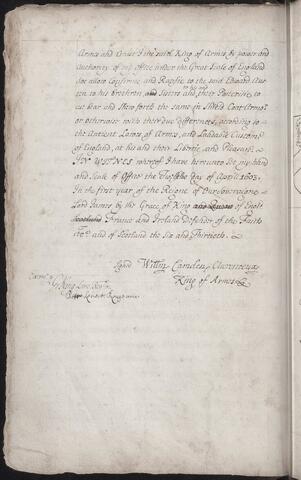 Armes and Crest I the said King of Armes by power and
Authority of my office under the Great Seale of England
doe allow Confirme and Ratifie to the said Edward
ten to his brethren and Sisters and their Posterity to
use bear and shew forth the same in Shield Coat Armor
or otherwise with their due differences, according to
the Antient Lawes of Armes, and Laudable Customs
of England, at his and their Libertie and Pleasure.
IN WITNES whereof I have hereunto Set my hand
and Seale of Office the day of April 1603.
In the first year of the Reigne of Our Soveraigne
Lord James by the Grace of King and of Engl:
Scotland France and Ireland Defender of the Faith
&c. and of Scotland the Six and Thirtieth.
Signd Willm Camden Clarenceux
King of Armes